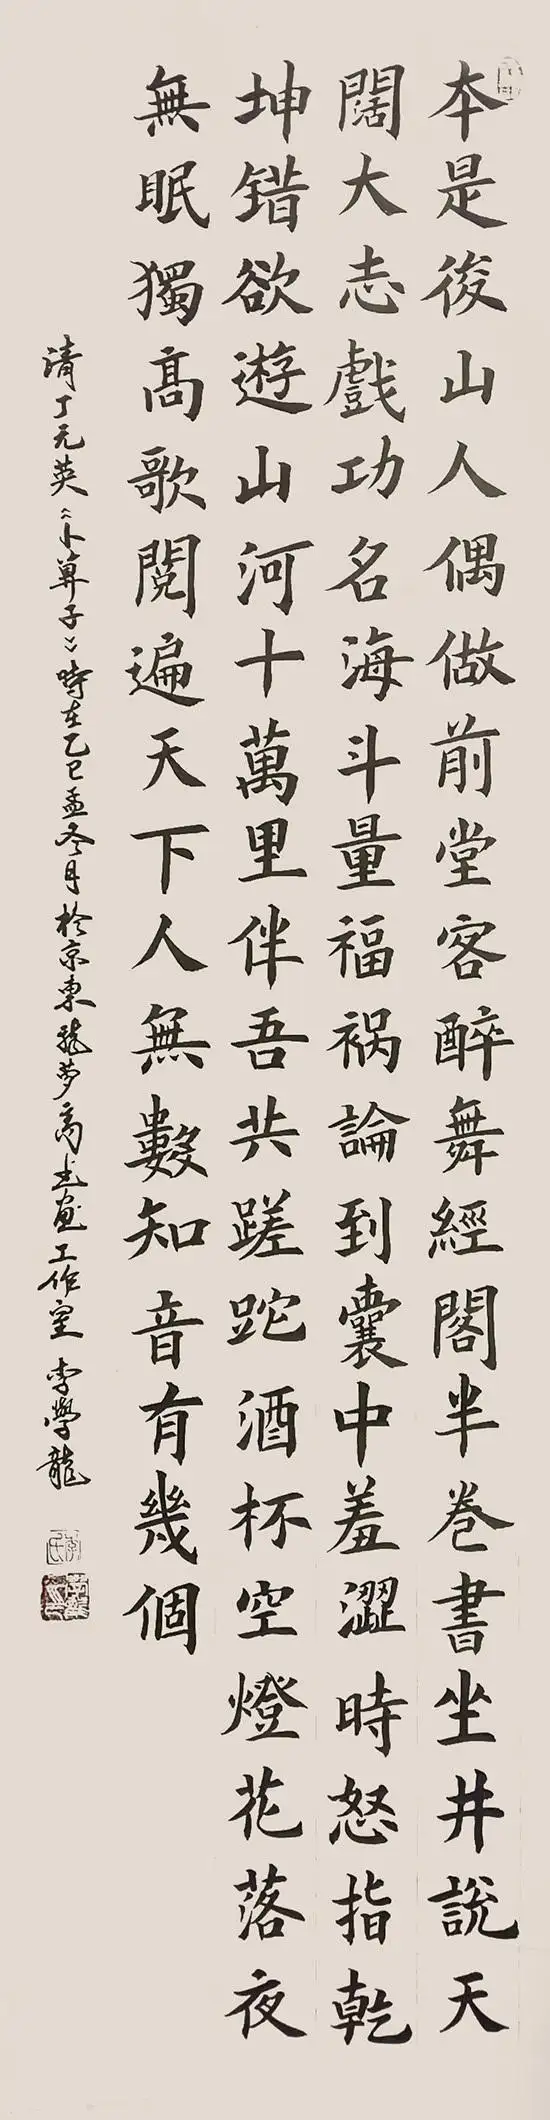 本是後山人偶做前堂客醉舞經閣半卷書坐井説天
闊大志戲功名海斗量福禍論到囊中羞澀時怒指乾
坤錯欲遊山河十萬里伴吾共蹉跎酒杯空燈花落夜
無眠獨高歌閲遍天下人無數知音有幾個
清丁元英《卜算子》時在乙巳孟冬月於京東龍夢高書画工作室李學龍